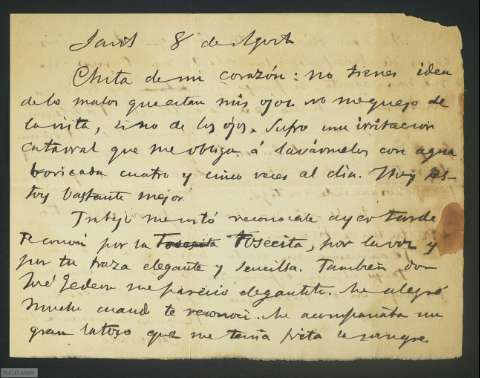 París 8 de Agosto
Chita de mi corazón: no tienes idea
de lo malos que estan mis ojos. no me quejo de
la vista, sino de los ojos. Sufro una irritacion
catarral que me obliga á lavármelos con agua
boricada cuatro y cinco veces al dia. Hoy es-
toy bastante mejor.
Trabajo me costó reconocerte ayer tarde
Te conocí por la Tosecita, por la voz y
por tu traza elegante y sencilla. Tambien don
José me pareció elegantito. Me alegré
mucho cuando te reconocí. Me acompañaba un
gran latoso que me tenia frita la sangre